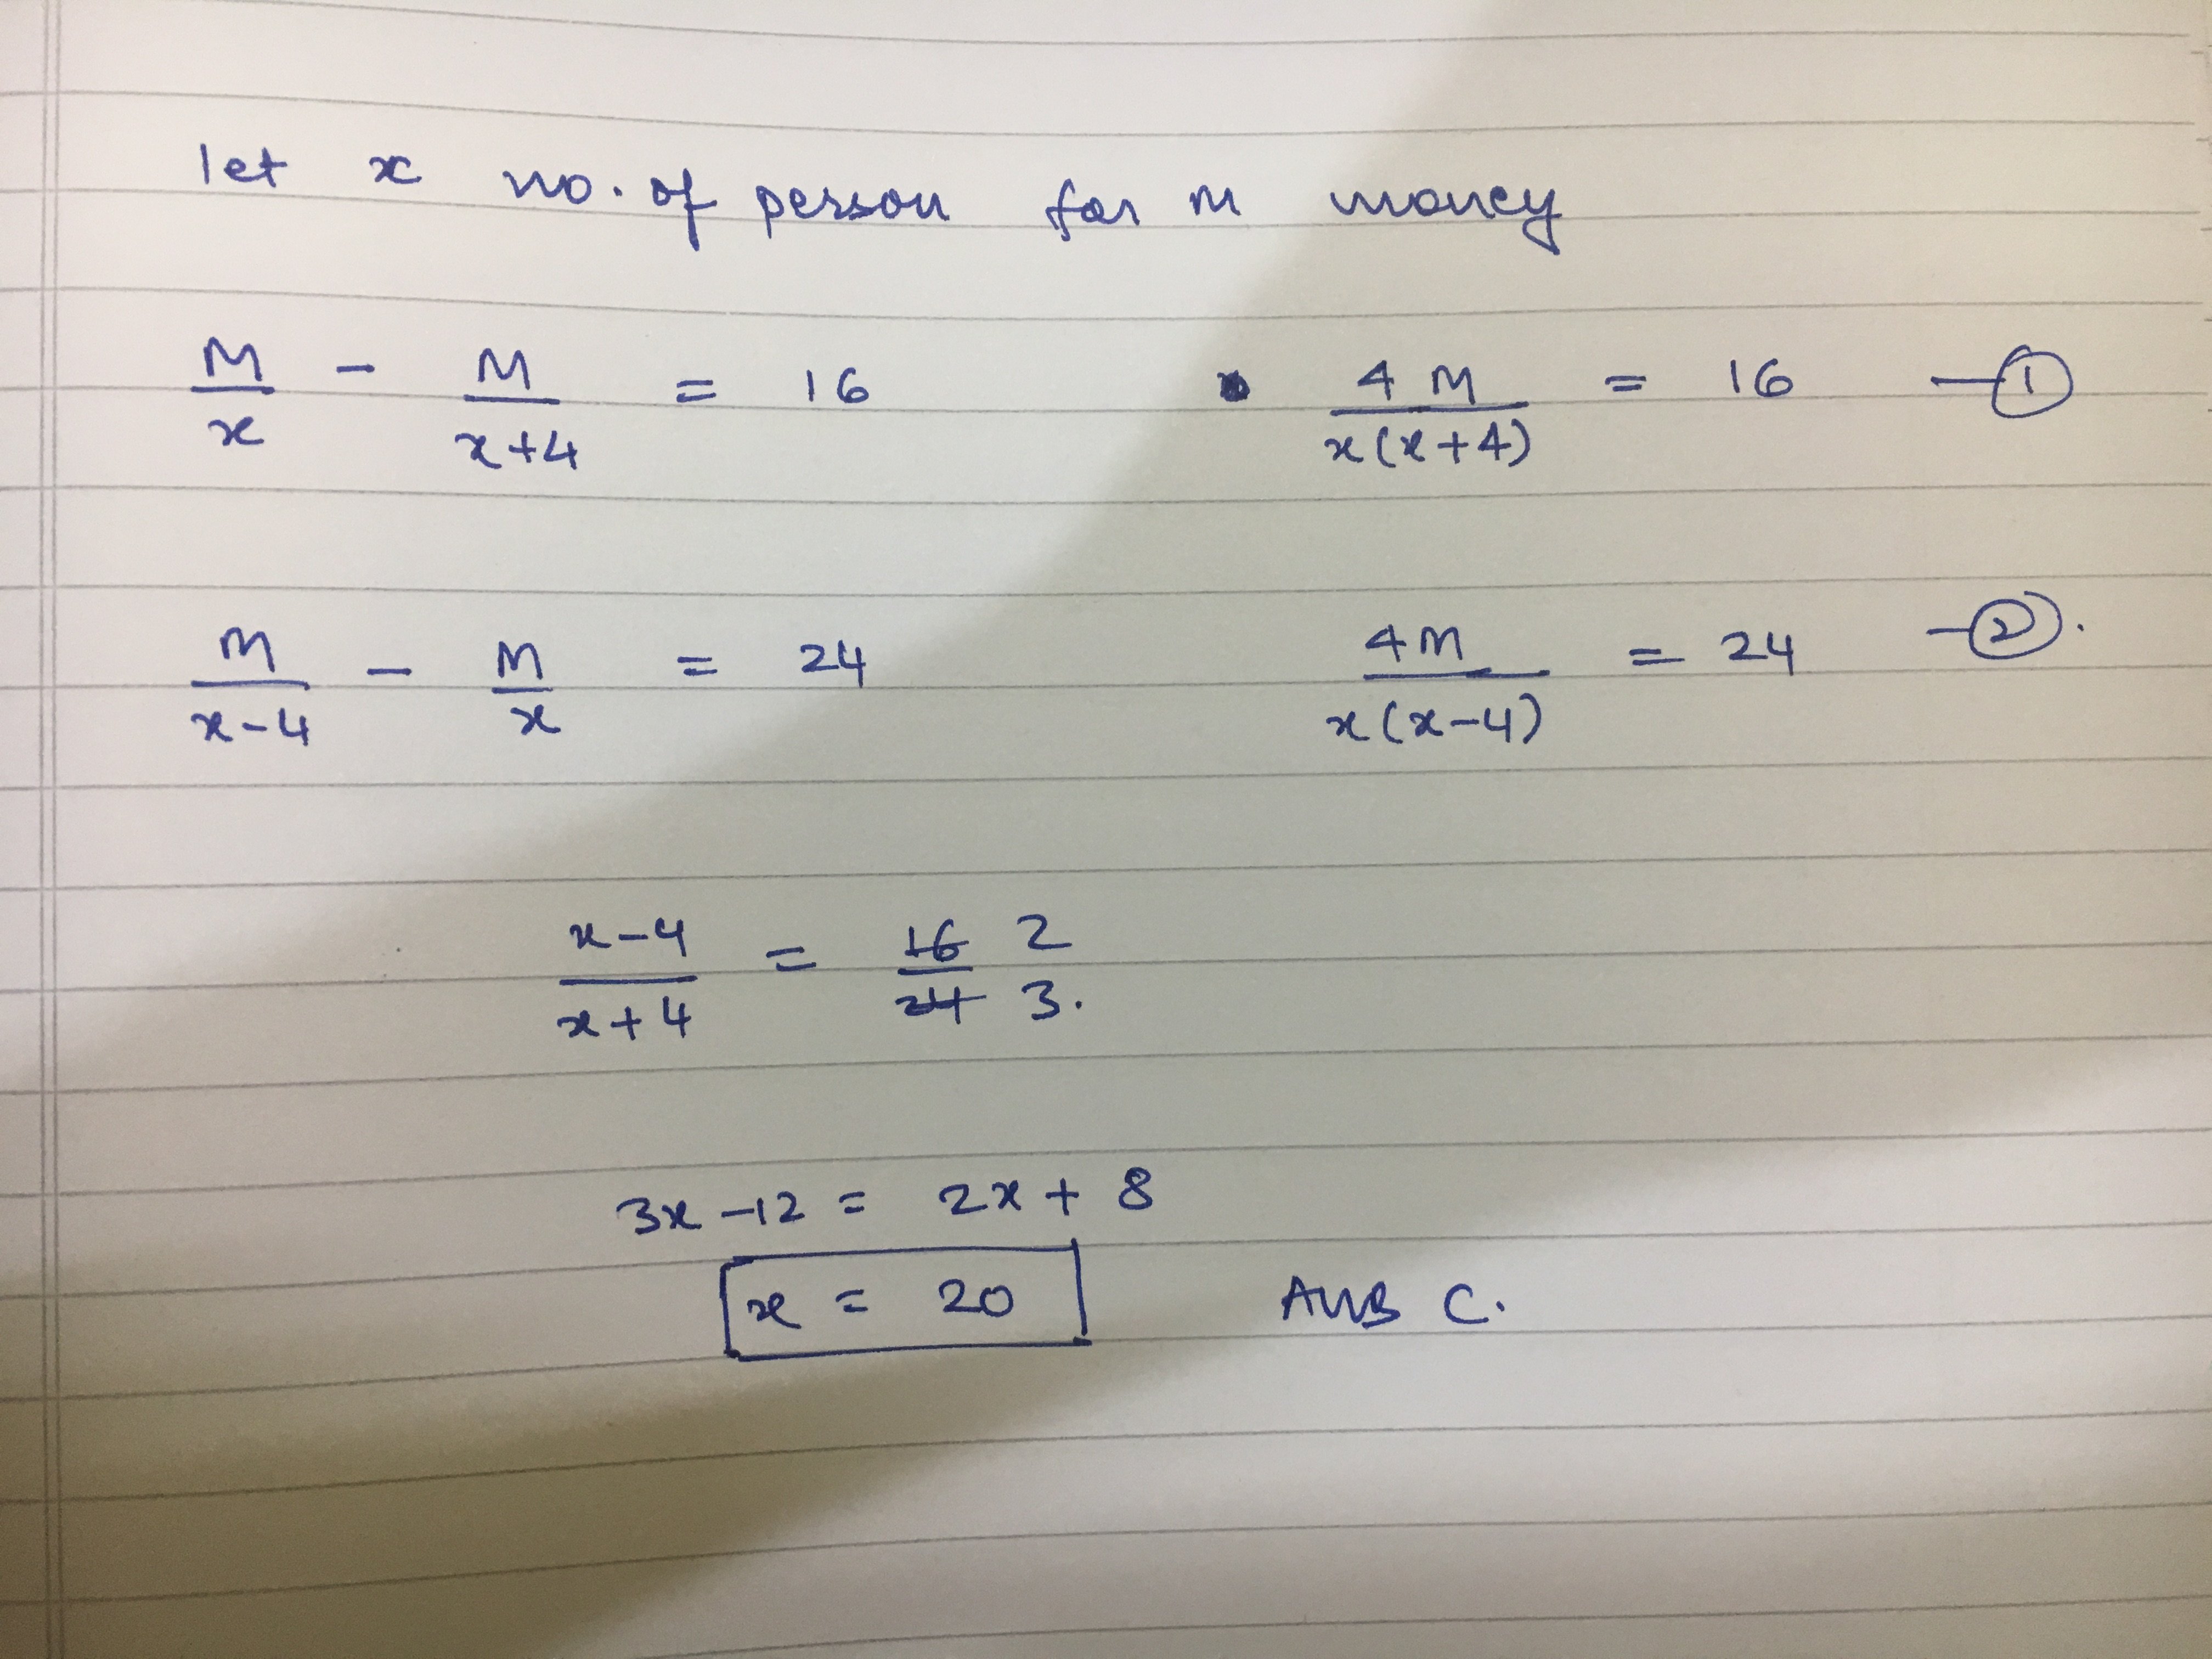 let x no. of person for M money
M/x - M/x+4 = 16 4M/x(x+4) = 16 —①
M/x-4 - M/x = 24 4M/x(x-4) = 24 —②.
x-4/x+4 = 16/24 2/3.
3x-12 = 2x+8
x = 20 Ans C.